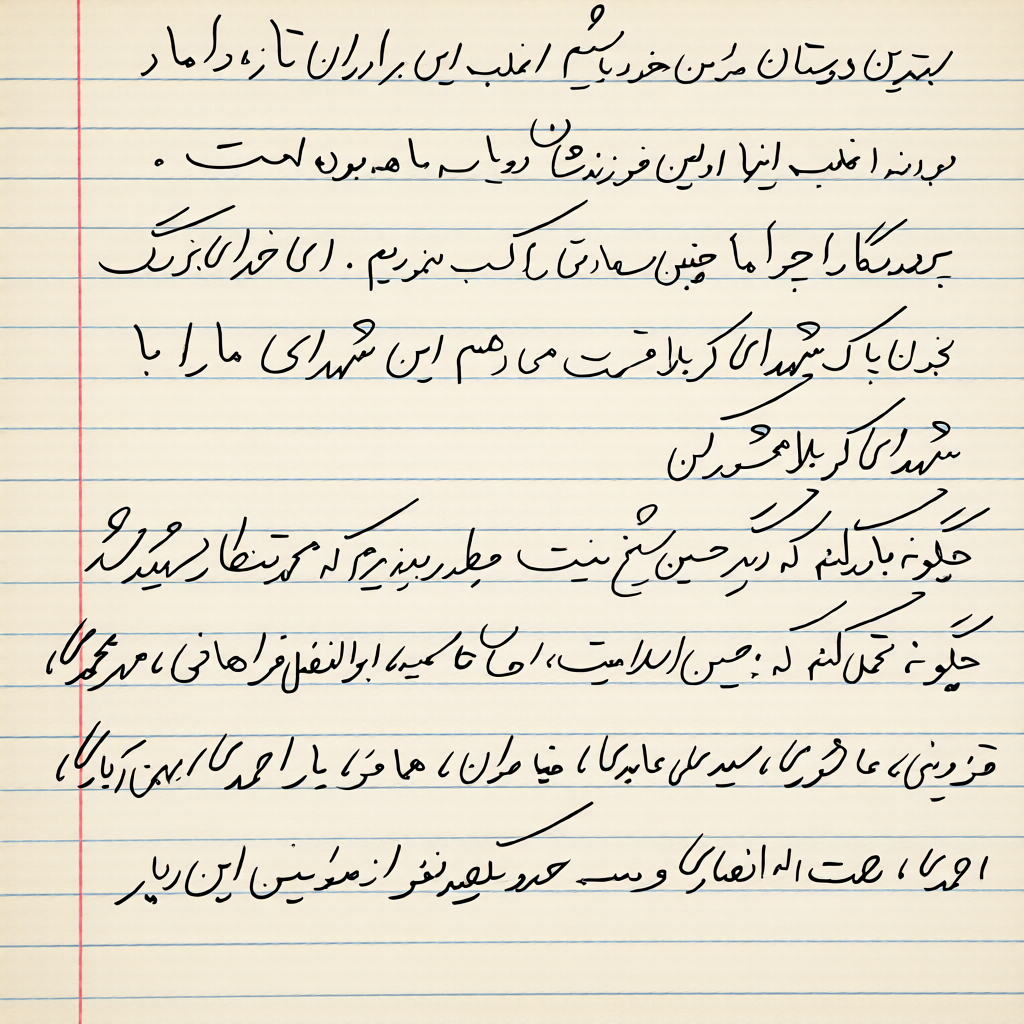 بهترین دوستان مؤمن خود باشیم اغلب این برادران تازه داماد
بودند اغلب اینها اولین فرزندشان دو یا سه ماهه بوده است .
پروردگارا چرا ما چنین سعادتی را کسب ننموریم . ای خدای بزرگ
بخون پاک شهدای کربلا قسمت می دهم این شهدای ما را با
شهدای کربلا محشور کن
چگونه باور کنم که دیگر حسین شیخ نیست چطور بپذیرم که محمد تنطار شهید شد
چگونه تحمل کنم که : حسین اسلامیت، احسان قاسمیه، ابوالفضل فراهانی، مهرمحمدی،
قزوینی، عاشوری، سید علی عابدی، ضیا مران، همافر، یار احمدی، بهمن آبادی،
احمدی، رحمت اله انصاری و سه حدو یکصد نفر از مؤمنین این دیار